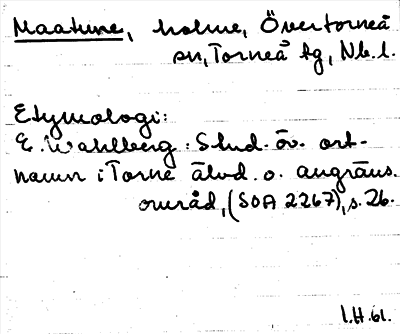 Maatune, holme, Övertorneå
sn, Torneå tg, Nb.l.
Etymologi:
E. Wahlberg: Stud. öv. ort-
namn i Torne älvd. o. angräns.
område, (SOA 2267), s. 26.
I.H. 61.